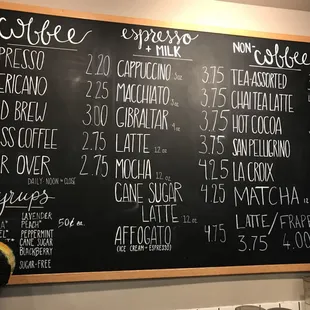 coffee
PRESSO 2.20
ERICANO 2.25
D BREW 3.00
SS COFFEE 2.75
R OVER 2.75
DAILY: NOON to CLOSE
yrups
LAVENDER
PEACH
PEPPERMINT
CANE SUGAR
BLACKBERRY
SUGAR-FREE
50¢ ea.
espresso
+ MILK
CAPPUCCINO 5oz 3.75
MACCHIATO 3oz 3.75
GIBRALTAR 4oz 3.75
LATTE 12oz 3.75
MOCHA 12oz 4.25
CANE SUGAR
LATTE 12oz 4.25
AFFOGATO 4.75
(ICE CREAM + ESPRESSO)
NON-coffee
TEA-ASSORTED
CHAI TEA LATTE
HOT COCOA
SAN PELLEGRINO
LA CROIX
MATCHA 12oz
LATTE/FRAPPE
3.75 4.00